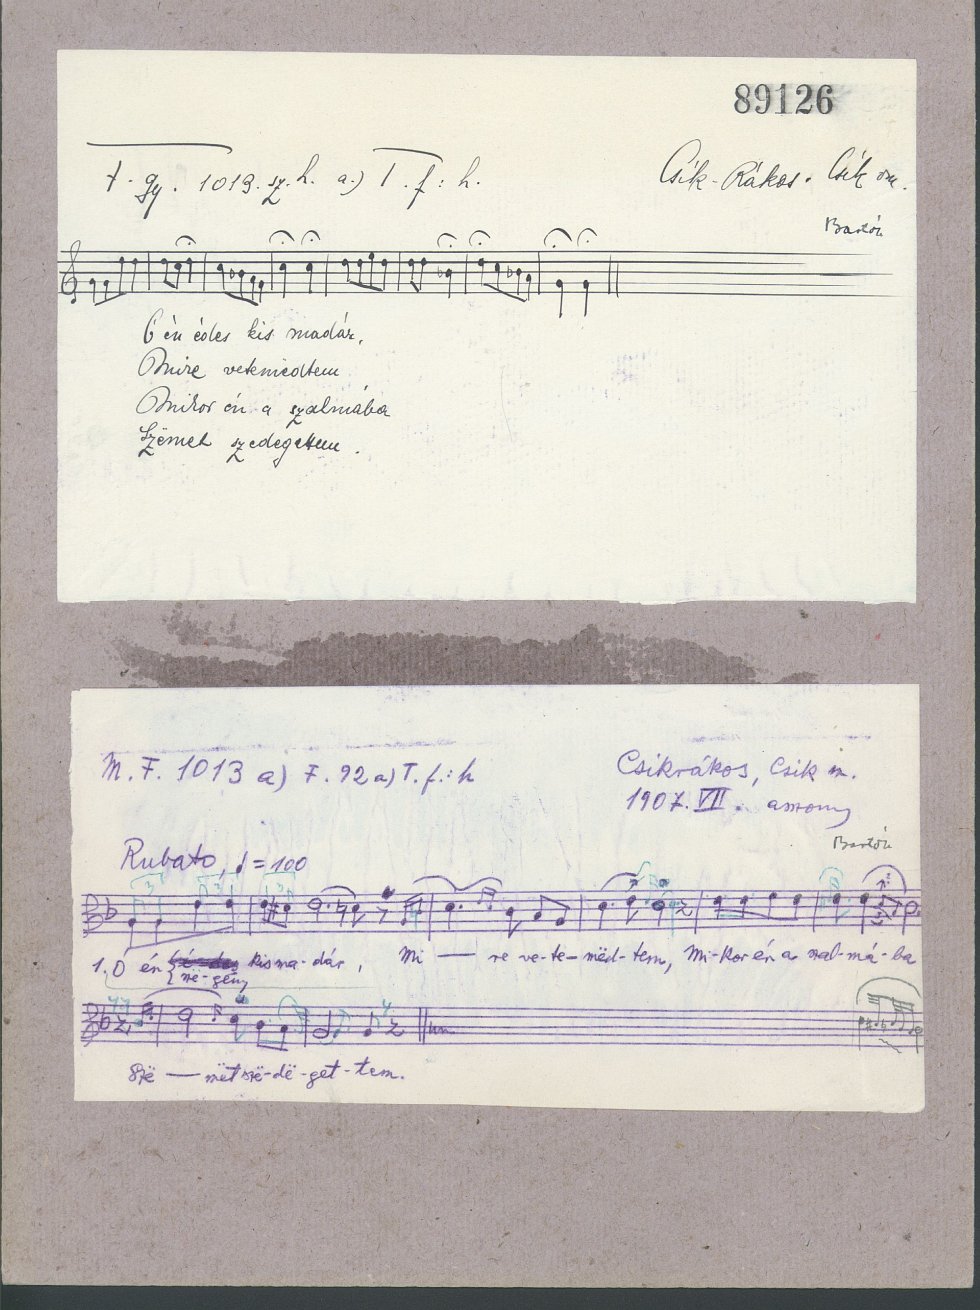 89126
F. gy. 1013. sz. h. a.) T. f: h.
Csík-Rákos. Csík m.
Bartók
Ó én édes kis madár,
Mire vetemedtem
Mikor én a szalmába
Szëmet szedegettem.
M. F. 1013 a) F. 92 a) T. f.: h
Csikrákos, Csik m.
1907. VII. asszony
Bartók
Rubato, ♩ = 100
3 3 3
1. Ó én é-des kis ma-dár, Mi — re ve-te-mëd-tem, Mi-kor én a szal-má-ba
sze-gény
Szë — mët szë-dë-get-tem.